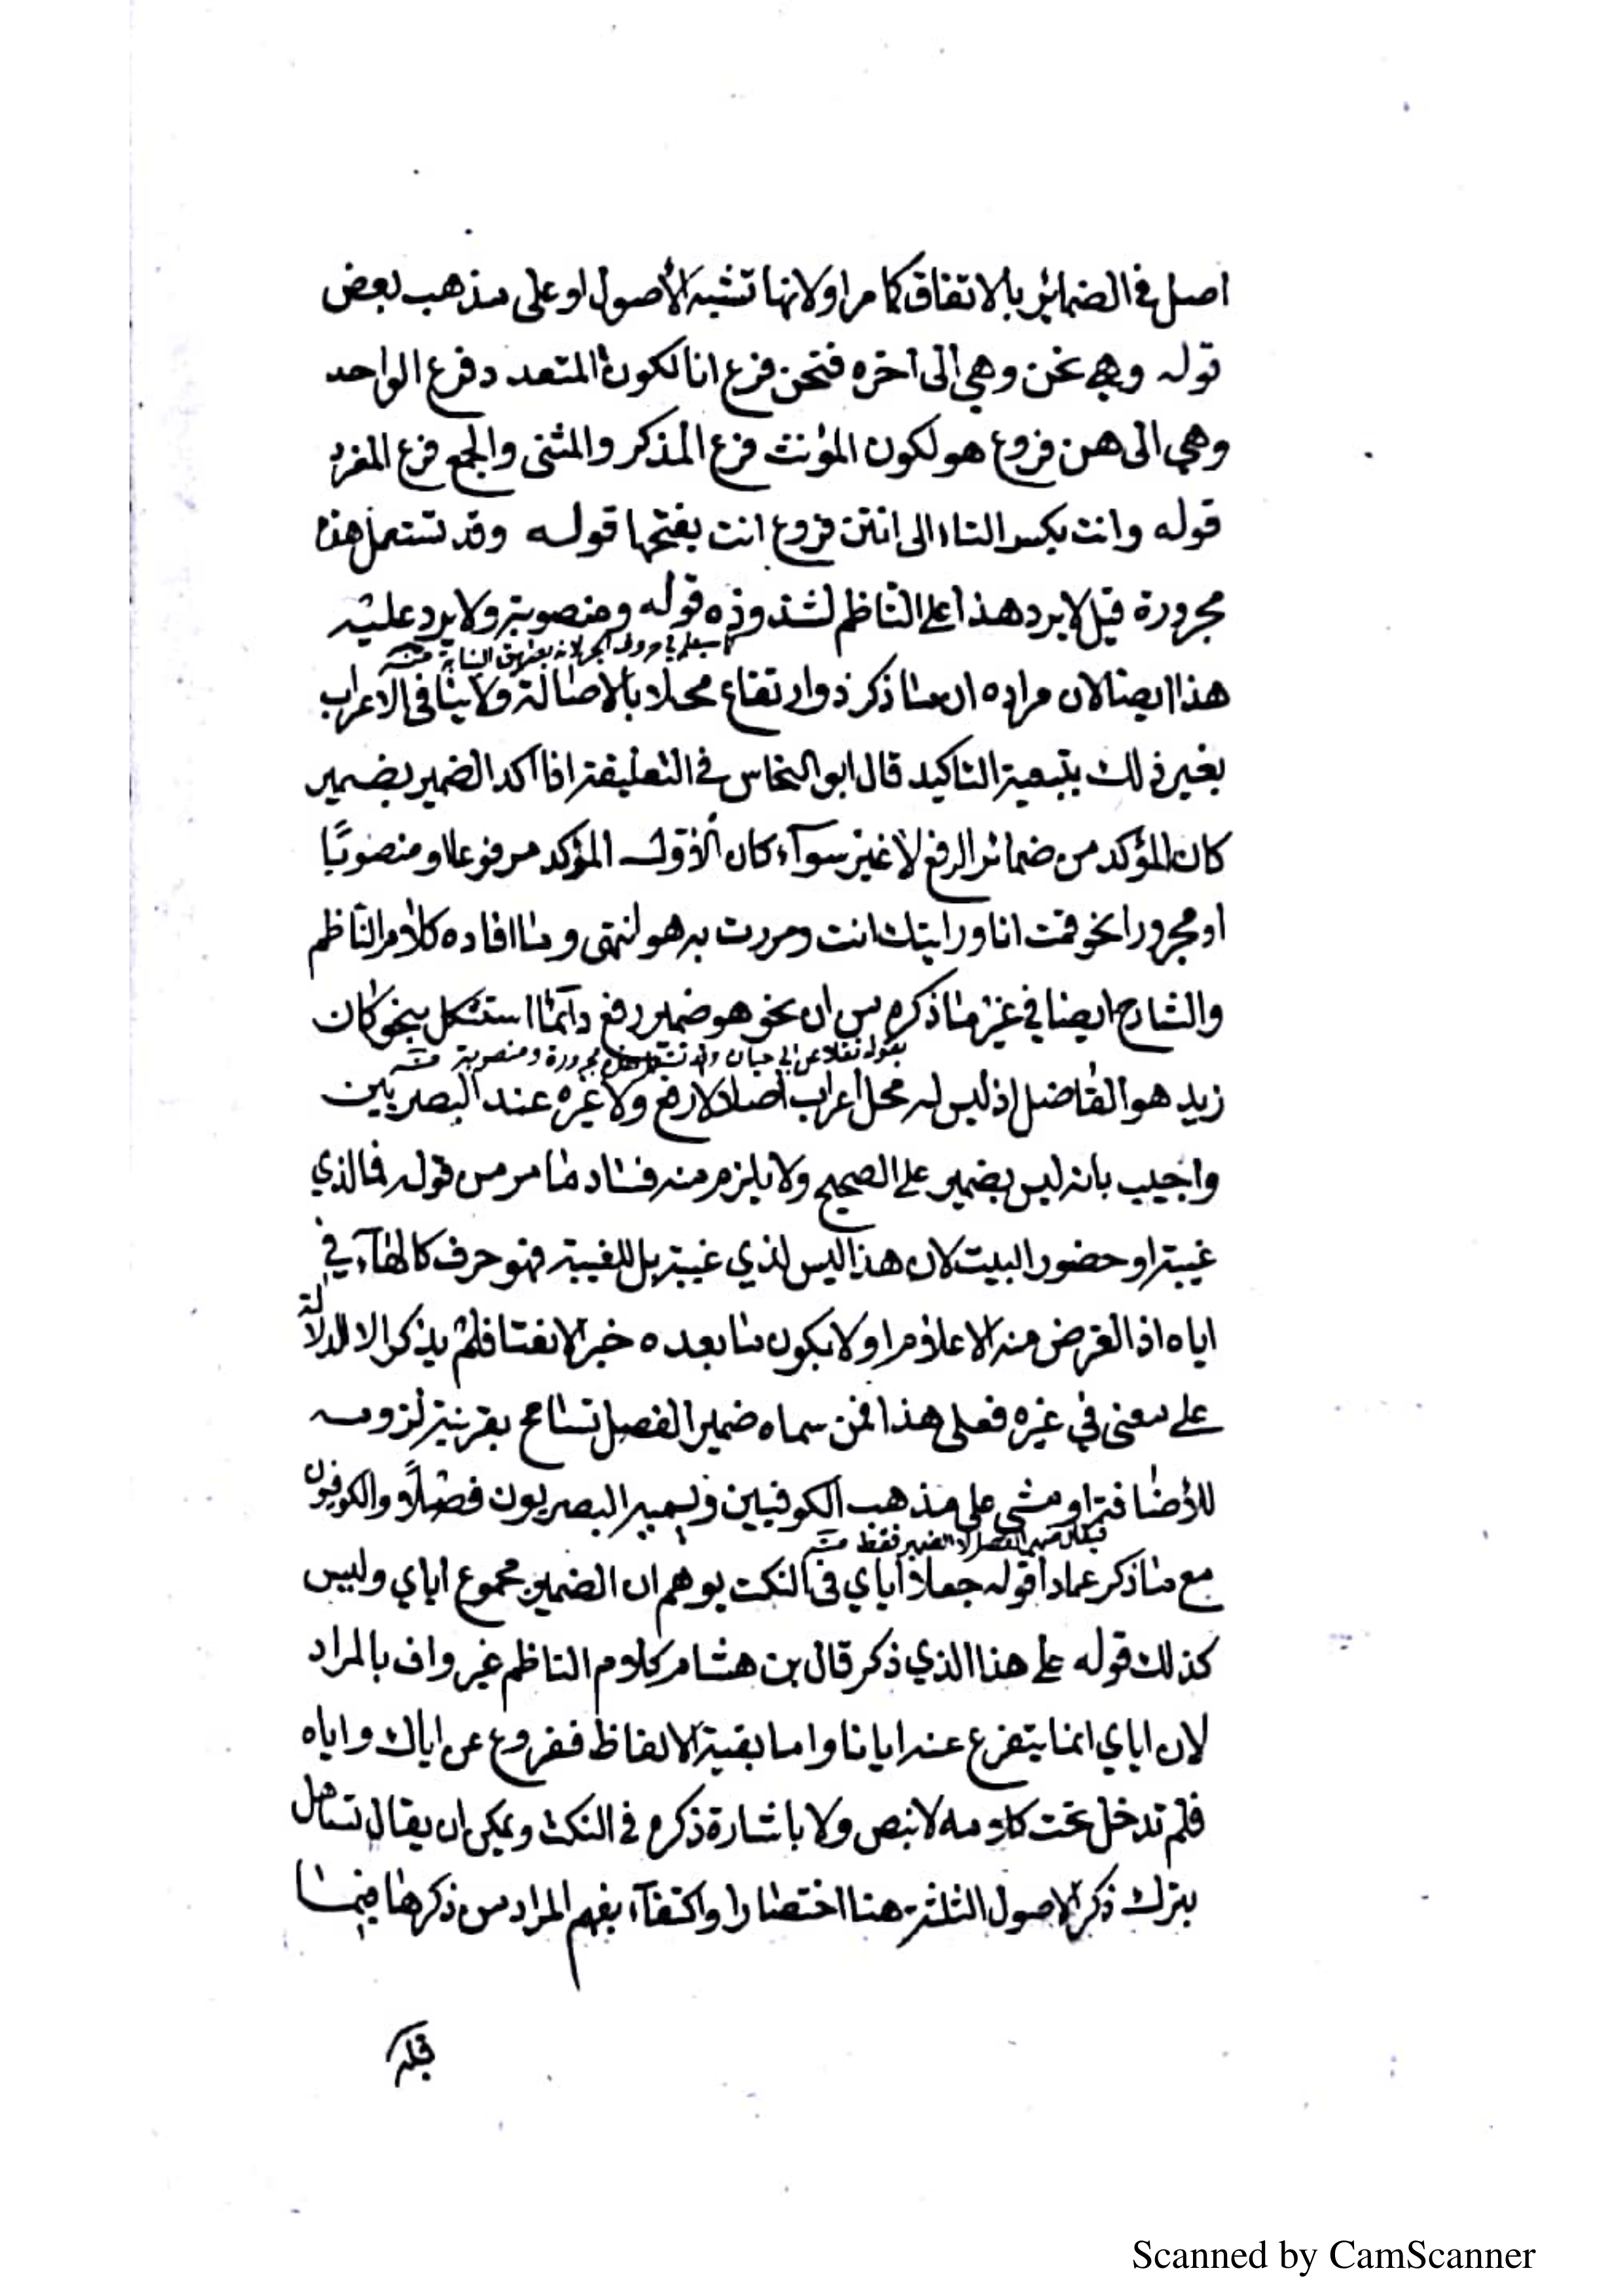 اصل في الضمائر بالاتفاق كما مر اولانها تشبه الأصول او على مذهب بعض
قوله وهي نحن وهي الى آخره فنحن فرع انا لكون المتعدد فرع الواحد
وهي الى هن فروع هو لكون المؤنث فرع المذكر والمثنى والجمع فرع المفرد
قوله وانت بكسر التاء الى انتن فروع انت بفتحها قوله وقد تستعمل هذه
مجرورة قيل لا يرد هذا على الناظم لشذوذه قوله ومنصوبة ولا يرد عليه
هذا ايضا لان مراده ان ما ذكر ذو ارتفاع محلا بالاصالة ولا ينافي الاعراب
بغير ذلك بتبعية التاكيد قال ابو النحاس في التعليقة اذا اكد الضمير بضمير
كان المؤكد من ضمائر الرفع لا غير سوآء كان الاول المؤكد مرفوعا او منصوبًا
او مجرورا نحو قمت انا ورايتك انت ومررت به هو انتهى وما افاده كلام الناظم
والشارح ايضا في غير ما ذكره من ان نحو هو ضمير رفع دآئما استشكل بنحو كان
بقوله نقلا عن ابي حيان وقد تستعمل هذه مجرورة ومنصوبة منه
زيد هو الفاضل اذ ليس له محل اعراب اصلا لا رفع ولا غيره عند البصريين
واجيب بانه ليس بضمير على الصحيح ولا يلزم منه فساد ما مر من قوله فما لذي
غيبة او حضور البيت لان هذا ليس لذي غيبة بل للغيبة فهو حرف كالهآء في
اياه اذ الغرض منه الاعلام اولا بكون ما بعده خبرا لا نعتا فلم يذكر الا للدلالة
على معنى في غيره فعلى هذا فمن سماه ضمير الفصل تسامح بقرينة لزومه
للأضافة او مشى على مذهب الكوفيين ويسميه البصريون فصلاً والكوفيون
فيقال ضمير الفصل لا الضمير فقط منه
مع ما ذكر عمادا قوله جعلا اياي في النكت يوهم ان الضمير مجموع اياي وليس
كذلك قوله على هذا الذي ذكر قال بن هشام كلام الناظم غير واف بالمراد
لان اياي انما يتفرع عنه ايانا واما بقية الالفاظ ففروع عن اياك واياه
فلم تدخل تحت كلامه لا بنص ولا باشارة ذكره في النكت ويمكن ان يقال تساهل
بترك ذكر الاصول الثلثة هنا اختصارا واكتفآء بفهم المراد من ذكرها فيما
قبله
Scanned by CamScanner